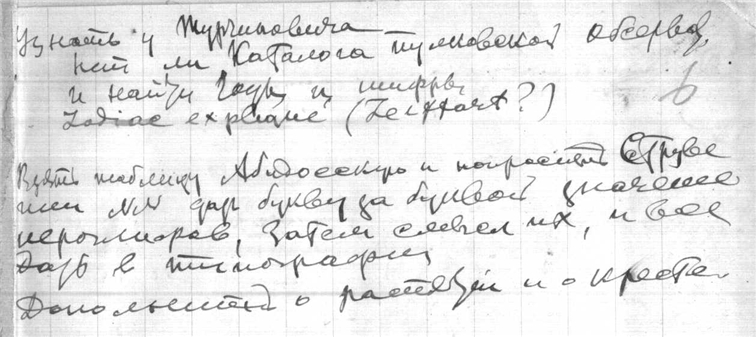 Узнать у Журкиновича
нет ли Каталога пулковской обсерват.
и найти годы и шифры
Zodiac expliqué (Leithart?)
6
Взять таблицу Абидосскую и попросить Струве
или NN дать букву за буквой значение
иероглифов, затем слов их, и все
дать в типографию
Дополнить о распятии и о кресте